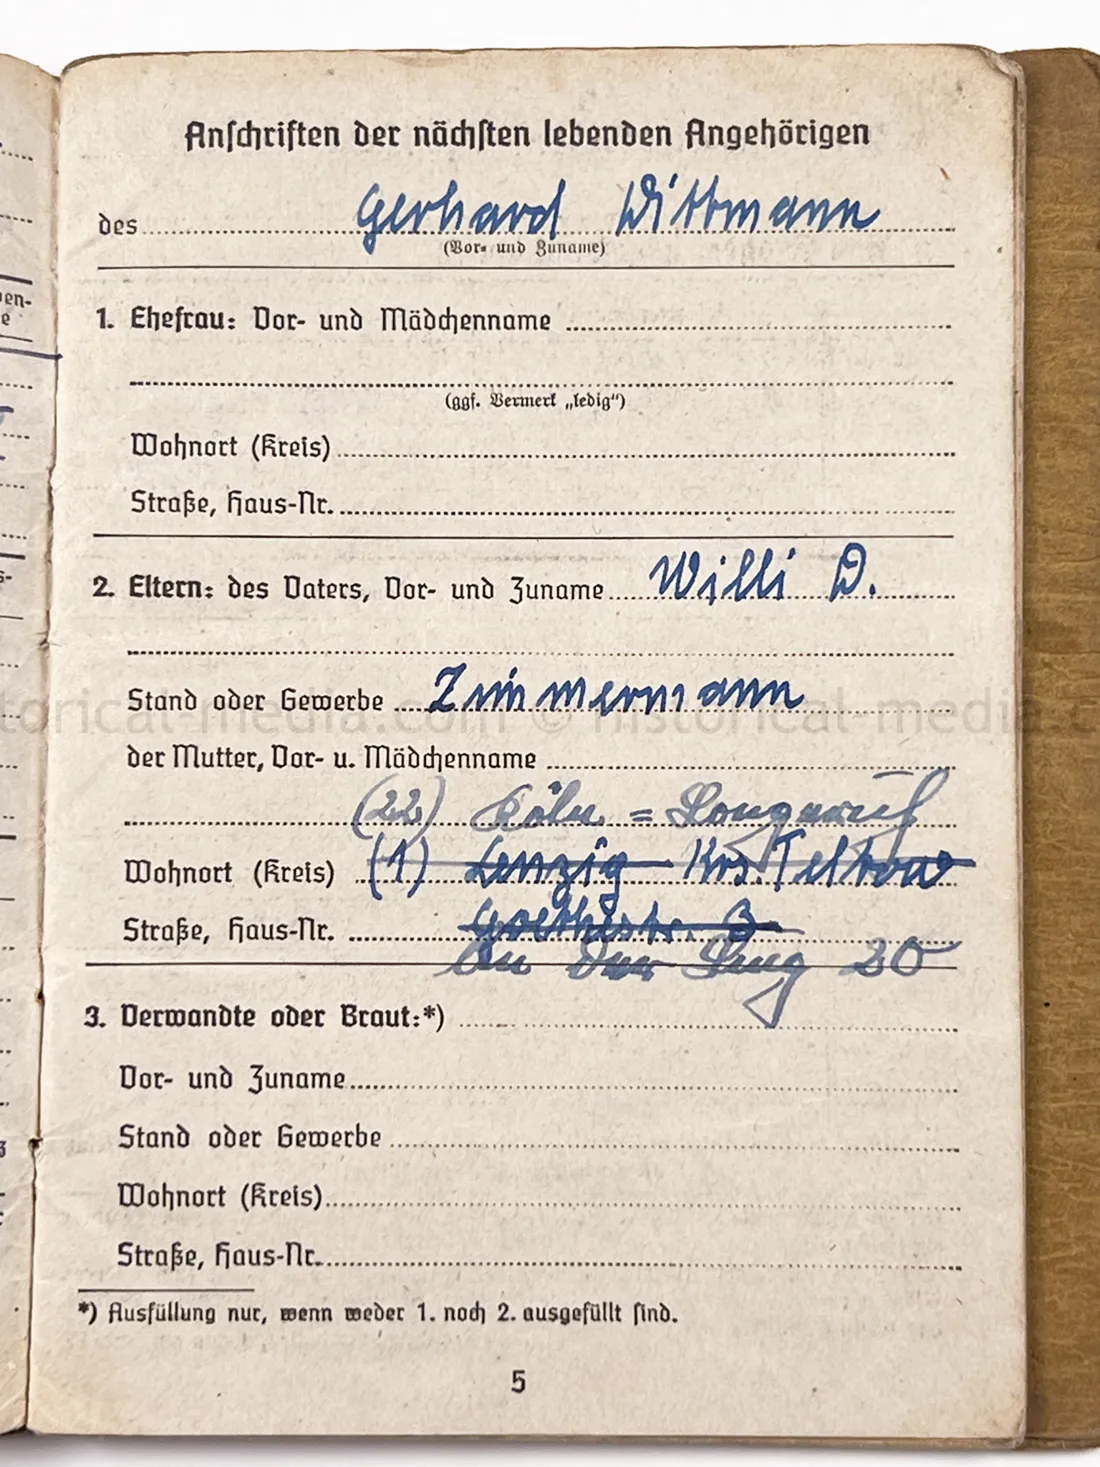 Anschriften der nächsten lebenden Angehörigen
des Gerhard Dittmann
(Vor- und Zuname)
1. Ehefrau: Vor- und Mädchenname
(ggf. Vermerk „ledig“)
Wohnort (Kreis)
Straße, Haus-Nr.
2. Eltern: des Vaters, Vor- und Zuname Willi D.
Stand oder Gewerbe Zimmermann
historical-media.com © historical-media.c
der Mutter, Vor- u. Mädchenname
(22) Köln = Longerich
Wohnort (Kreis) (1) Krs. Teltow
Straße, Haus-Nr. Goethestr. 3
An der 20
3. Verwandte oder Braut:*)
Vor- und Zuname
Stand oder Gewerbe
Wohnort (Kreis)
Straße, Haus-Nr.
*) Ausfüllung nur, wenn weder 1. noch 2. ausgefüllt sind.
5